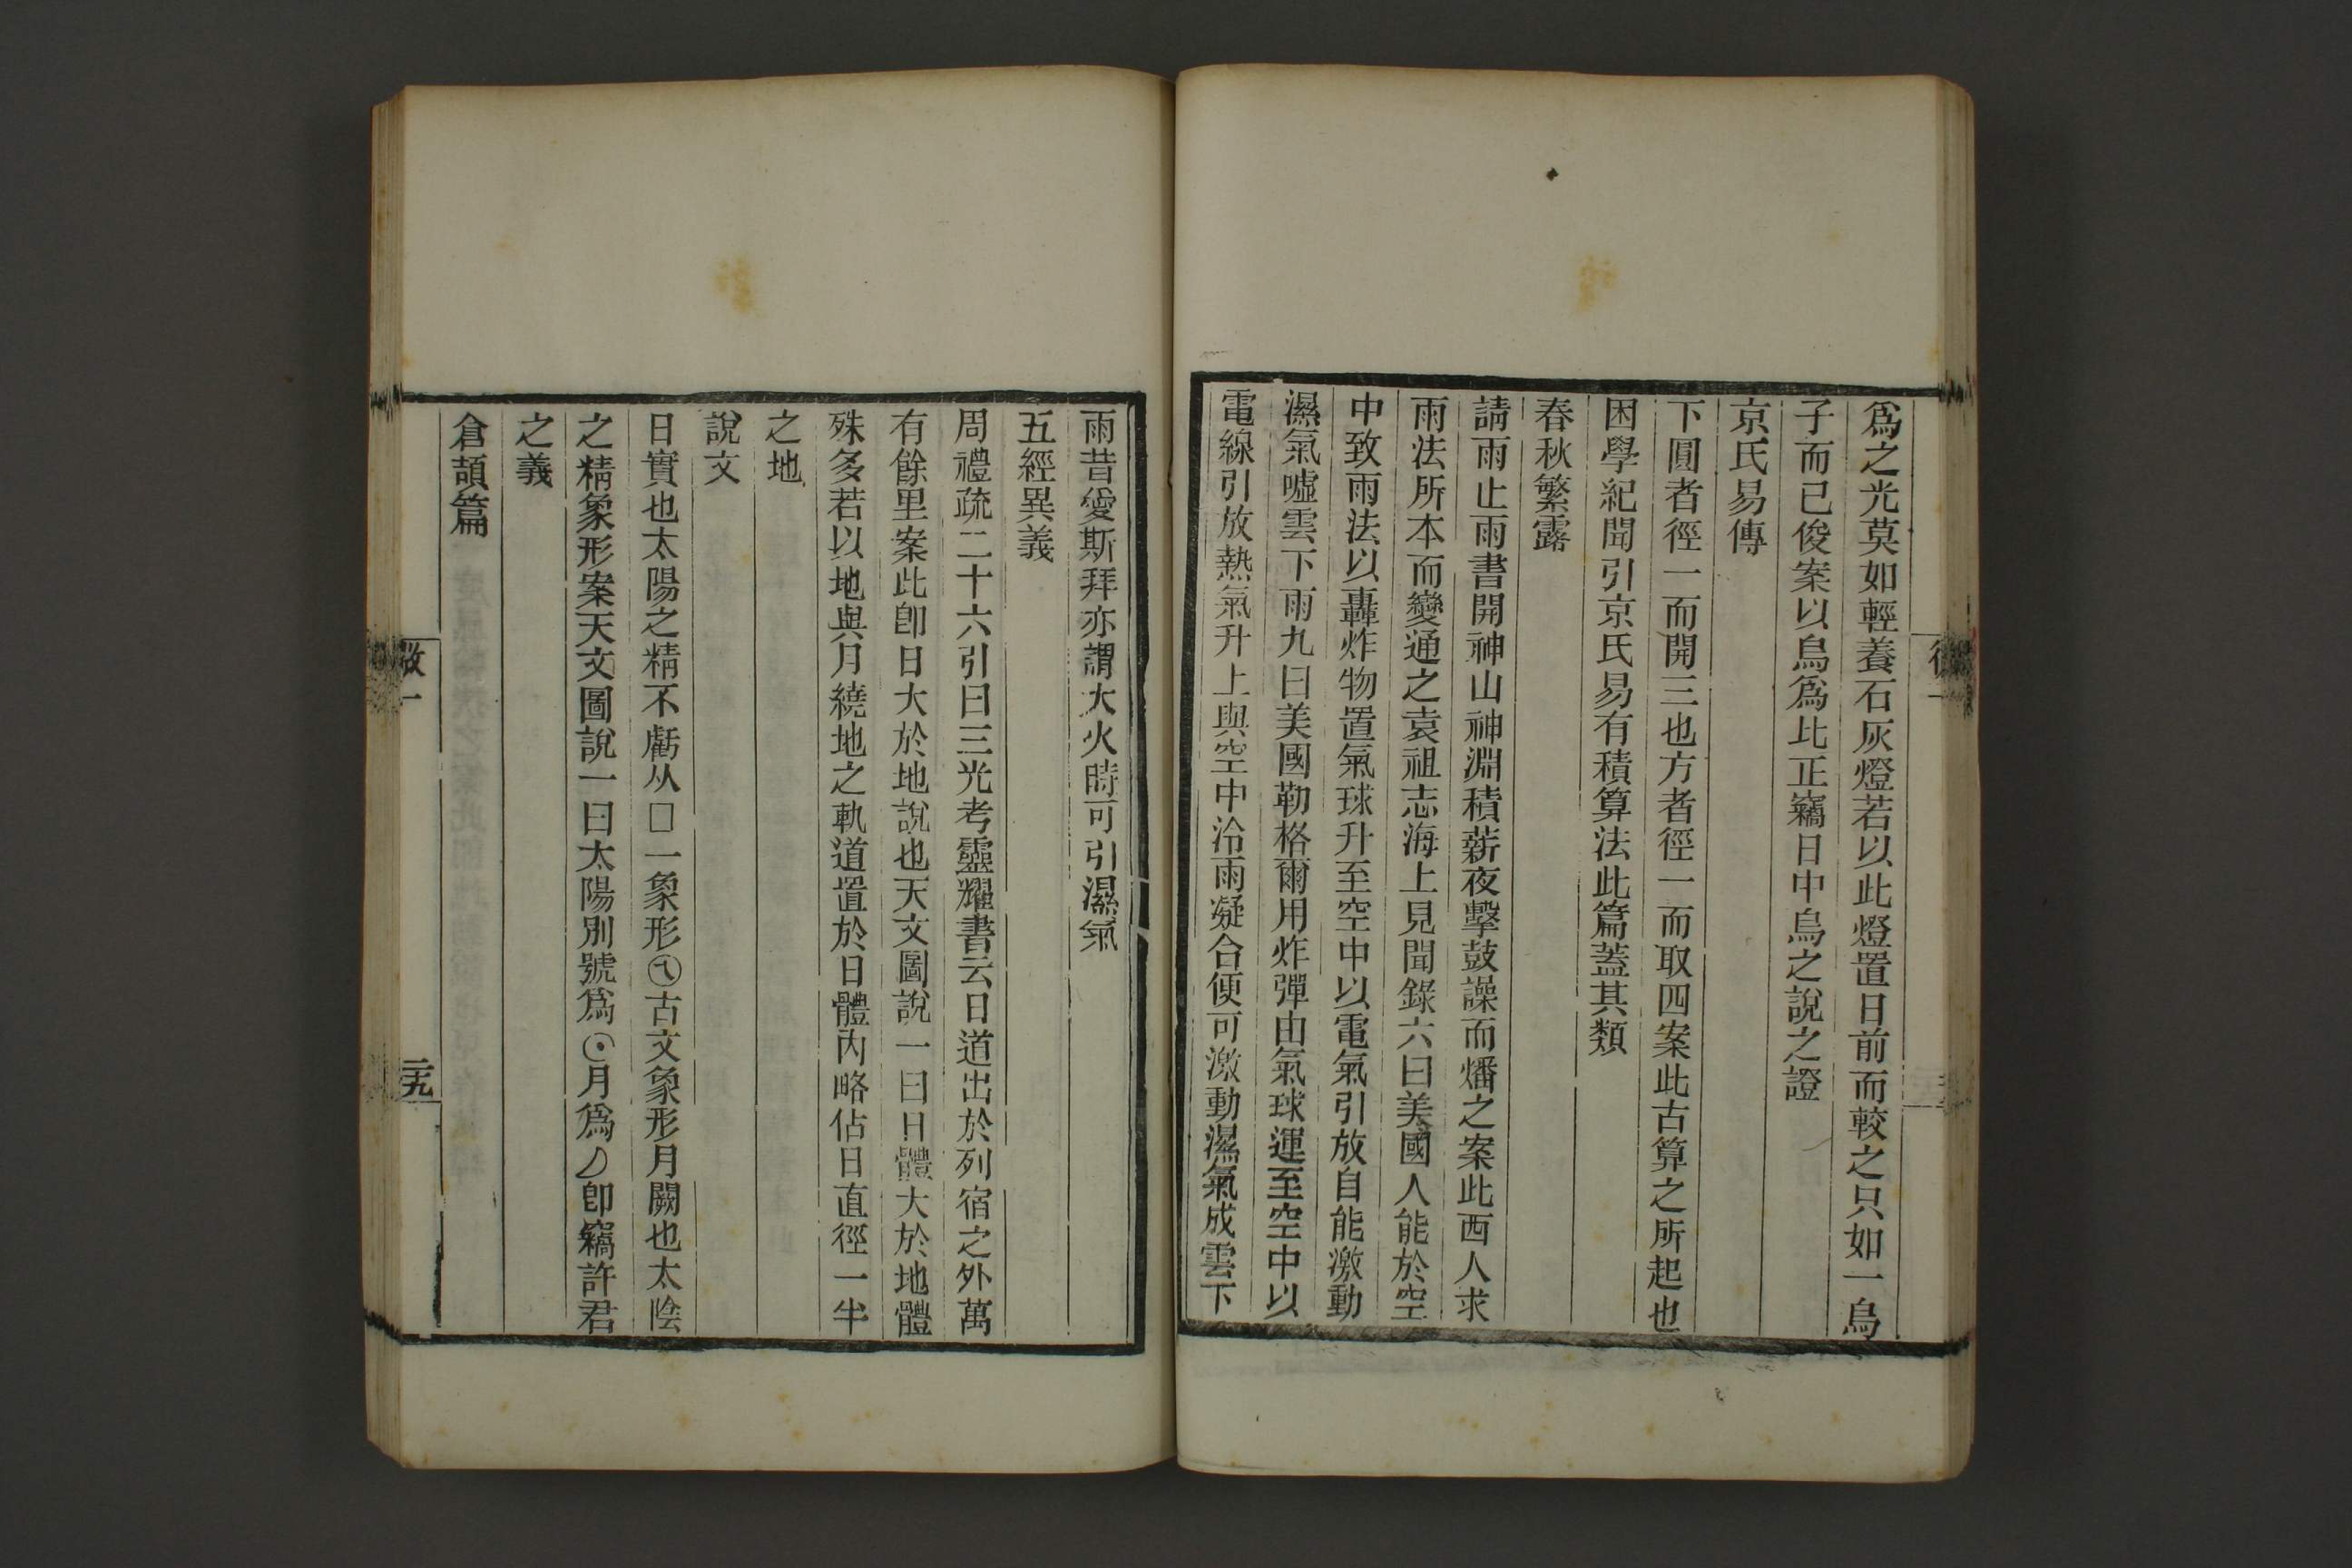 爲之光莫如輕養石灰燈若以此燈置日前而較之只如一烏
子而已俊案以烏爲比正竊日中烏之說之證
京氏易傳
下圓者徑一而開三也方者徑一而取四案此古算之所起也
困學紀聞引京氏易有積算法此篇蓋其類
春秋繁露
請雨止雨書開神山神淵積薪夜擊鼓譟而燔之案此西人求
雨法所本而變通之袁祖志海上見聞錄六曰美國人能於空
中致雨法以轟炸物置氣球升至空中以電氣引放自能激動
濕氣噓雲下雨九曰美國勒格爾用炸彈由氣球運至空中以
電線引放熱氣升上與空中冷雨凝合便可激動濕氣成雲下
雨昔愛斯拜亦謂大火時可引濕氣
五經異義
周禮疏二十六引曰三光考靈耀書云日道出於列宿之外萬
有餘里案此卽日大於地說也天文圖說一曰日體大於地體
殊多若以地與月繞地之軌道置於日體內略佔日直徑一半
之地
說文
日實也太陽之精不虧从口一象形古文象形月闕也太陰
之精象形案天文圖說一曰太陽別號爲☉月爲☽卽竊許君
之義
倉頡篇
二九